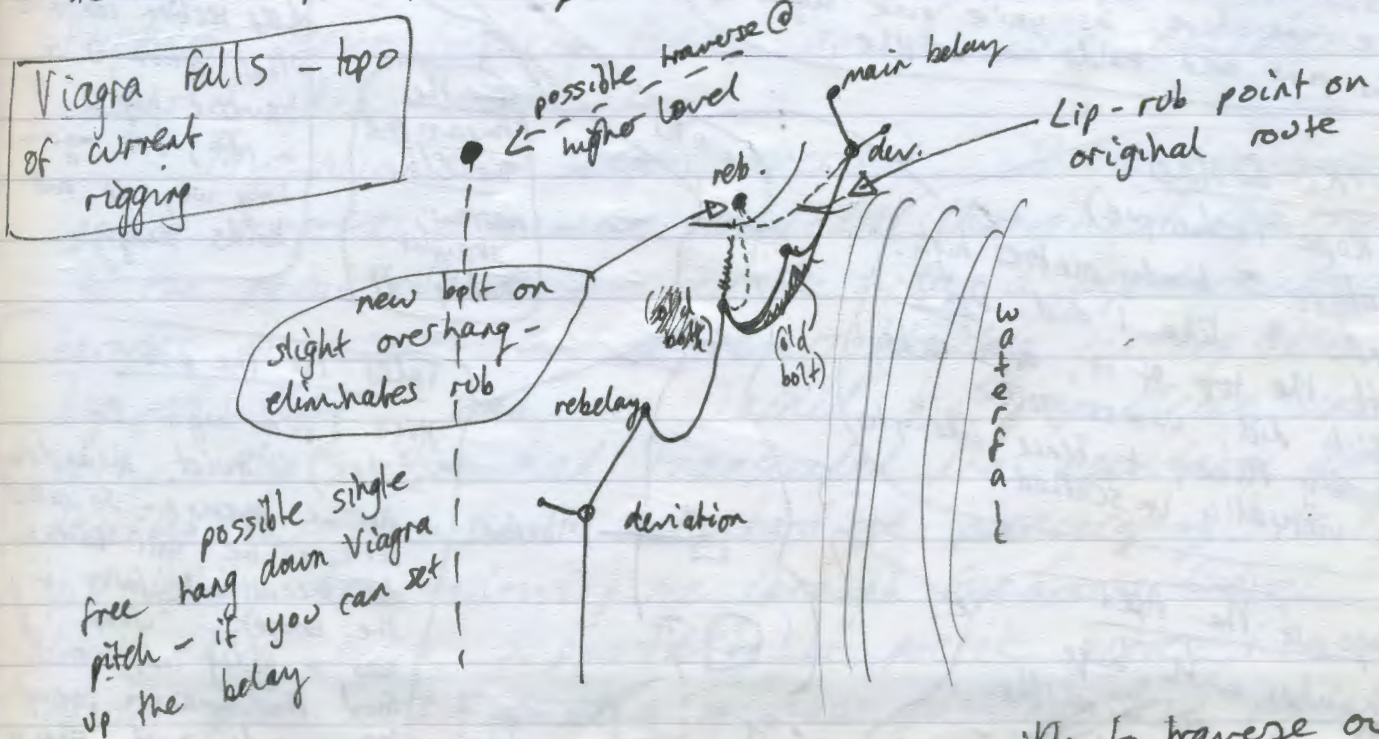 Viagra falls - topo
of current
rigging
possible traverse @
higher level
main belay
Lip-rub point on
original route
dev.
reb.
new bolt on
slight overhang -
eliminates rub
(old
bolt)
(old
bolt)
waterfall
rebelay
deviation
possible single
free hang down Viagra
pitch - if you can set
up the belay
to traverse ou